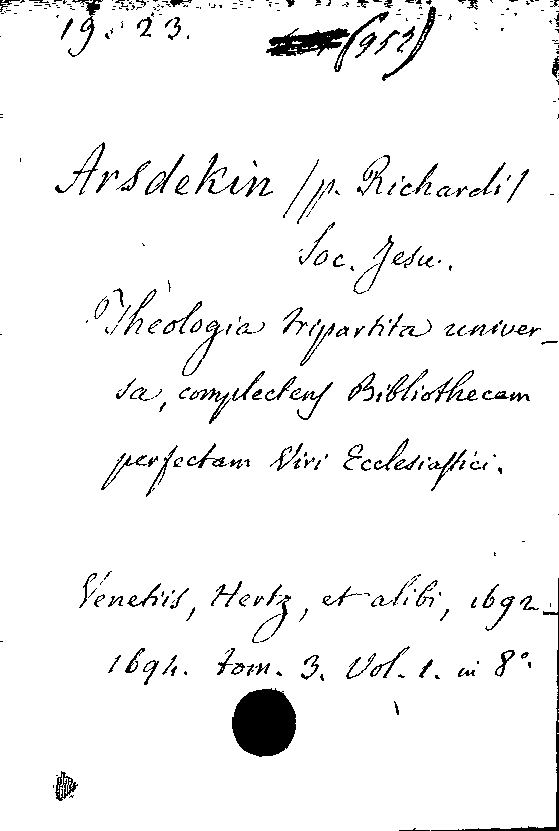 19. 23. (952)
Arsdekin /p. Richardi/
Soc. Jesu.
Theologia tripartita univer-
sa, complectens Bibliothecam
perfectam Viri Ecclesiastici.
Venetiis, Hertz, et alibi, 1692-
1694. tom. 3. Vol. 1. in 8°.